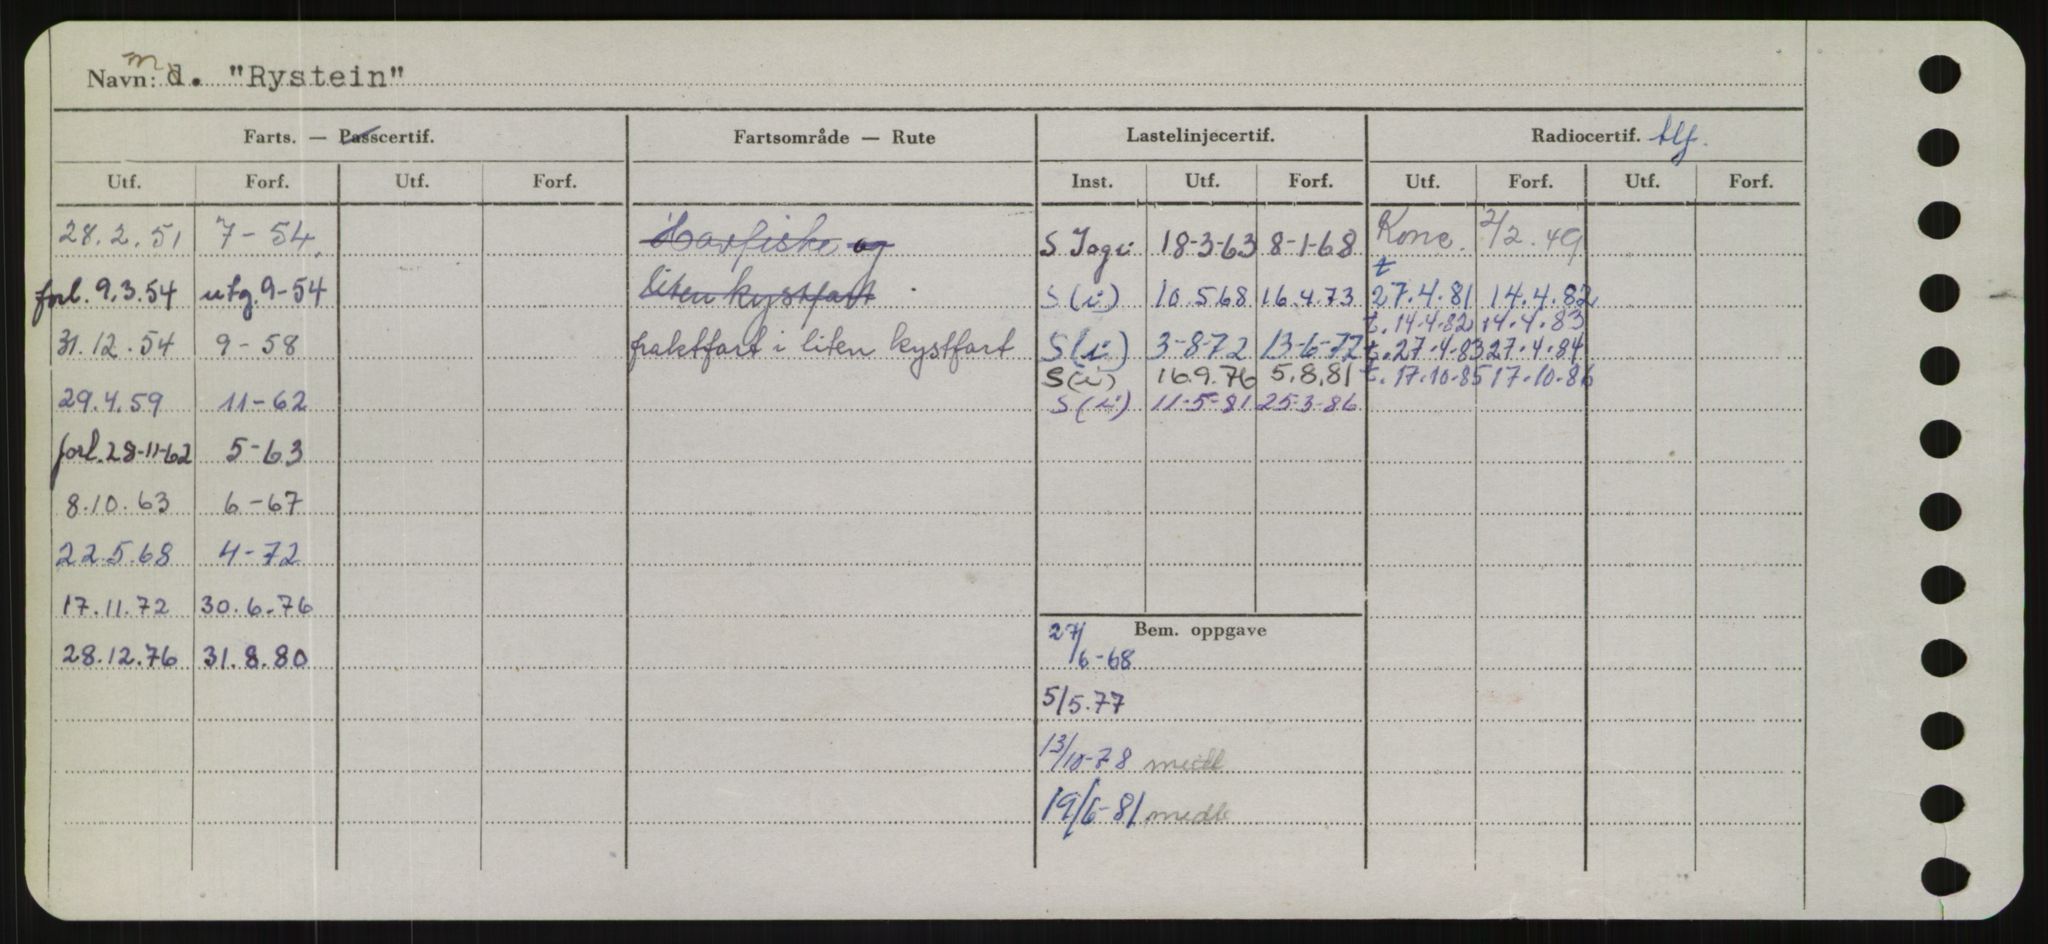 Navn: m d. "Rystein"
Farts. — Passcertif. Fartsområde — Rute Lastelinjecertif. Radiocertif. tlf.
Utf. Forf. Utf. Forf. Inst. Utf. Forf. Utf. Forf. Utf. Forf.
28.2.51 7-54. Havfiske og S Jogi 18-3-63 8-1-68 Konc. 2/2.49
forl. 9.3.54 utg. 9-54 liten kystfart S (i) 10.5.68 16.4.73 t 27.4.81 14.4.82
t. 14.4.82 14.4.83
31.12.54 9-58 fraktfart i liten kystfart S(i) 3-8-72 13-6-77 t. 27.4.83 27.4.84
S(i) 16.9.76 5.8.81 t. 17.10.85 17.10.86
29.4.59 11-62 S (i) 11-5-81 25-3-86
forl. 28-11-62 5-63
8.10.63 6-67
22.5.68 4-72
17.11.72 30.6.76
Bem. oppgave
28.12.76 31.8.80 27/6-68
5/5.77
13/10-78 medb
19/6-81 medb